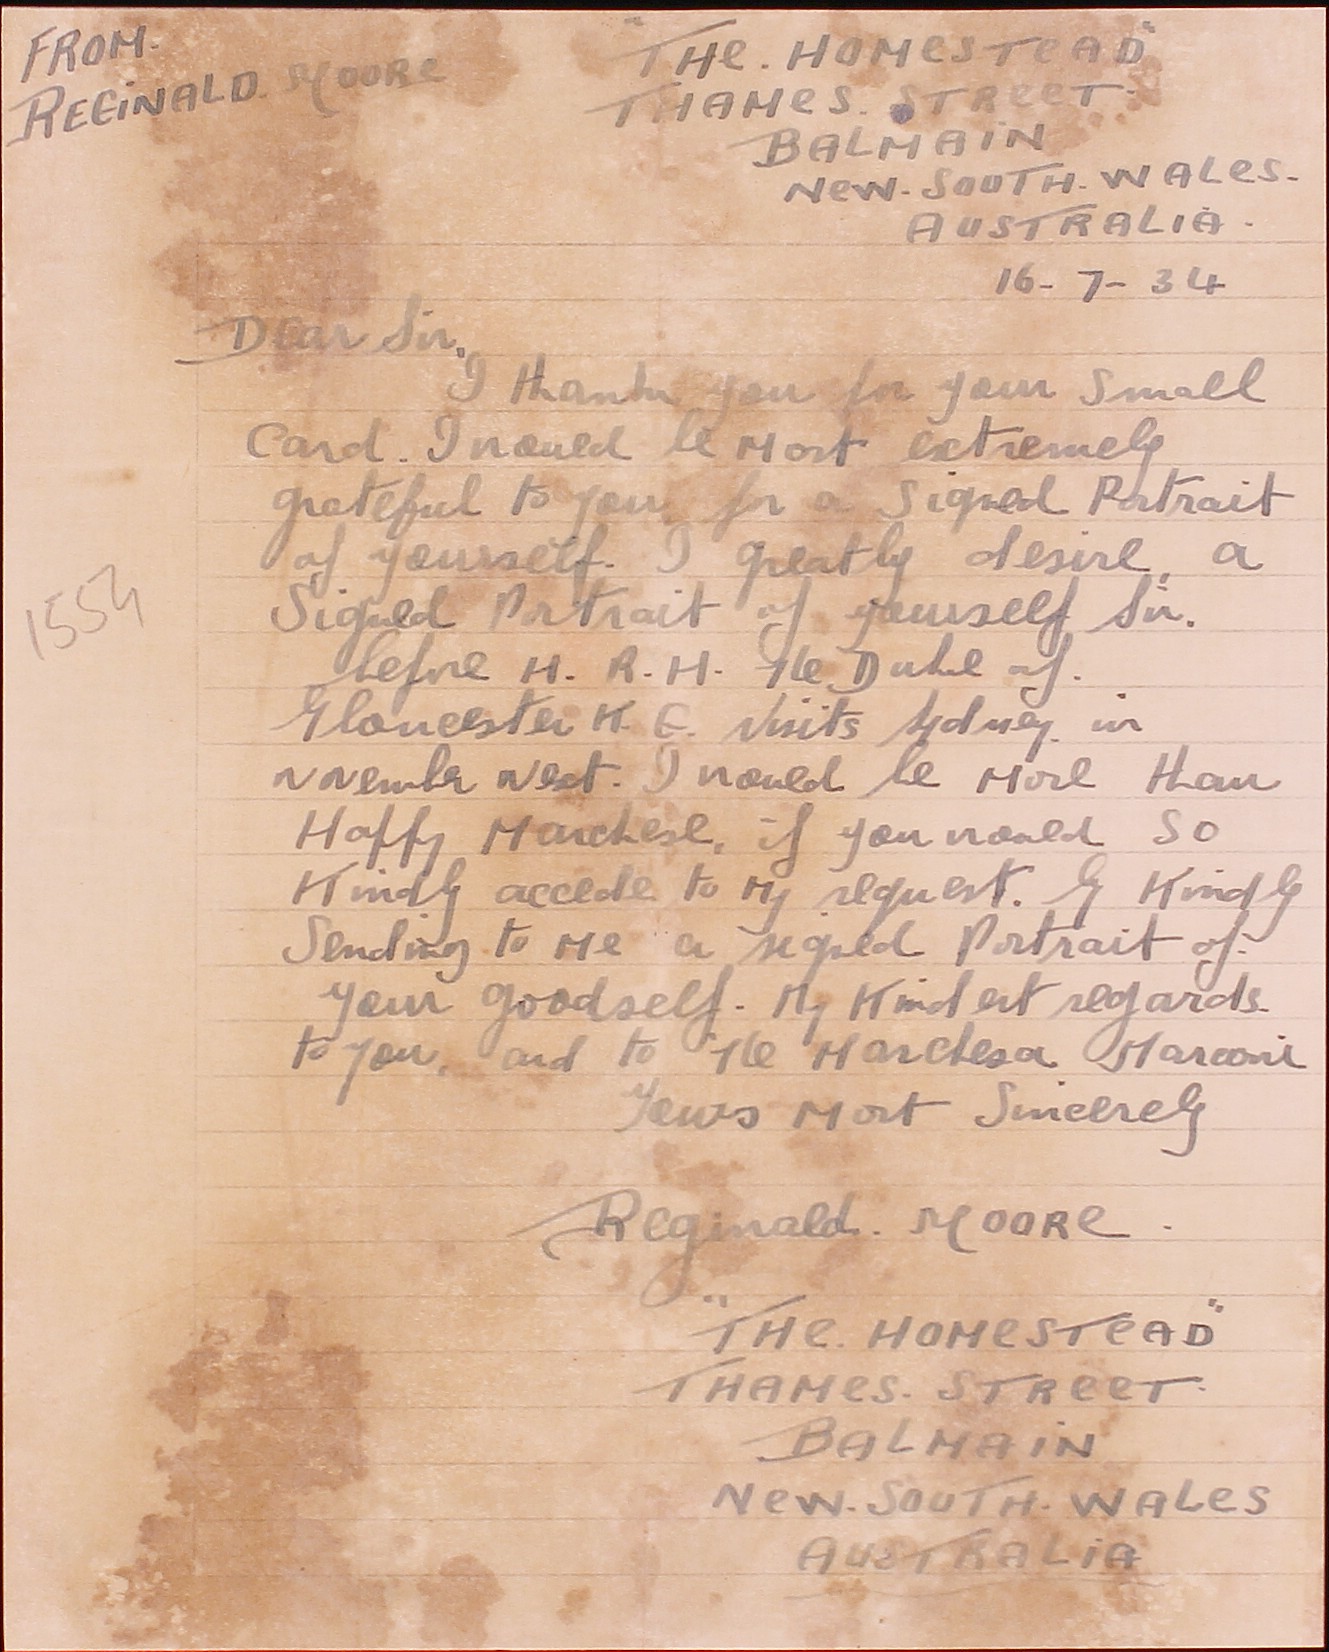 FROM.
REGINALD. MOORE
"THE. HOMESTEAD"
THAMES. STREET.
BALMAIN
NEW. SOUTH. WALES.
AUSTRALIA.
16-7-34
Dear Sir,
I thank you for your small
Card. I would be most extremely
grateful to you for a Signed Portrait
of yourself. I greatly desire, a
Signed Portrait of yourself Sir.
before H. R. H. The Duke of.
Gloucester K. G. visits Sydney in
November Next. I would be more than
Happy Marchese, if you would so
Kindly accede to my request. By Kindly
Sending to me a signed Portrait of.
your goodself. My Kindest regards.
to you, and to The Marchesa Marconi
Yours Most Sincerely
Reginald. MOORE.
"THE. HOMESTEAD"
THAMES. STREET.
BALMAIN
NEW. SOUTH. WALES
AUSTRALIA
1554